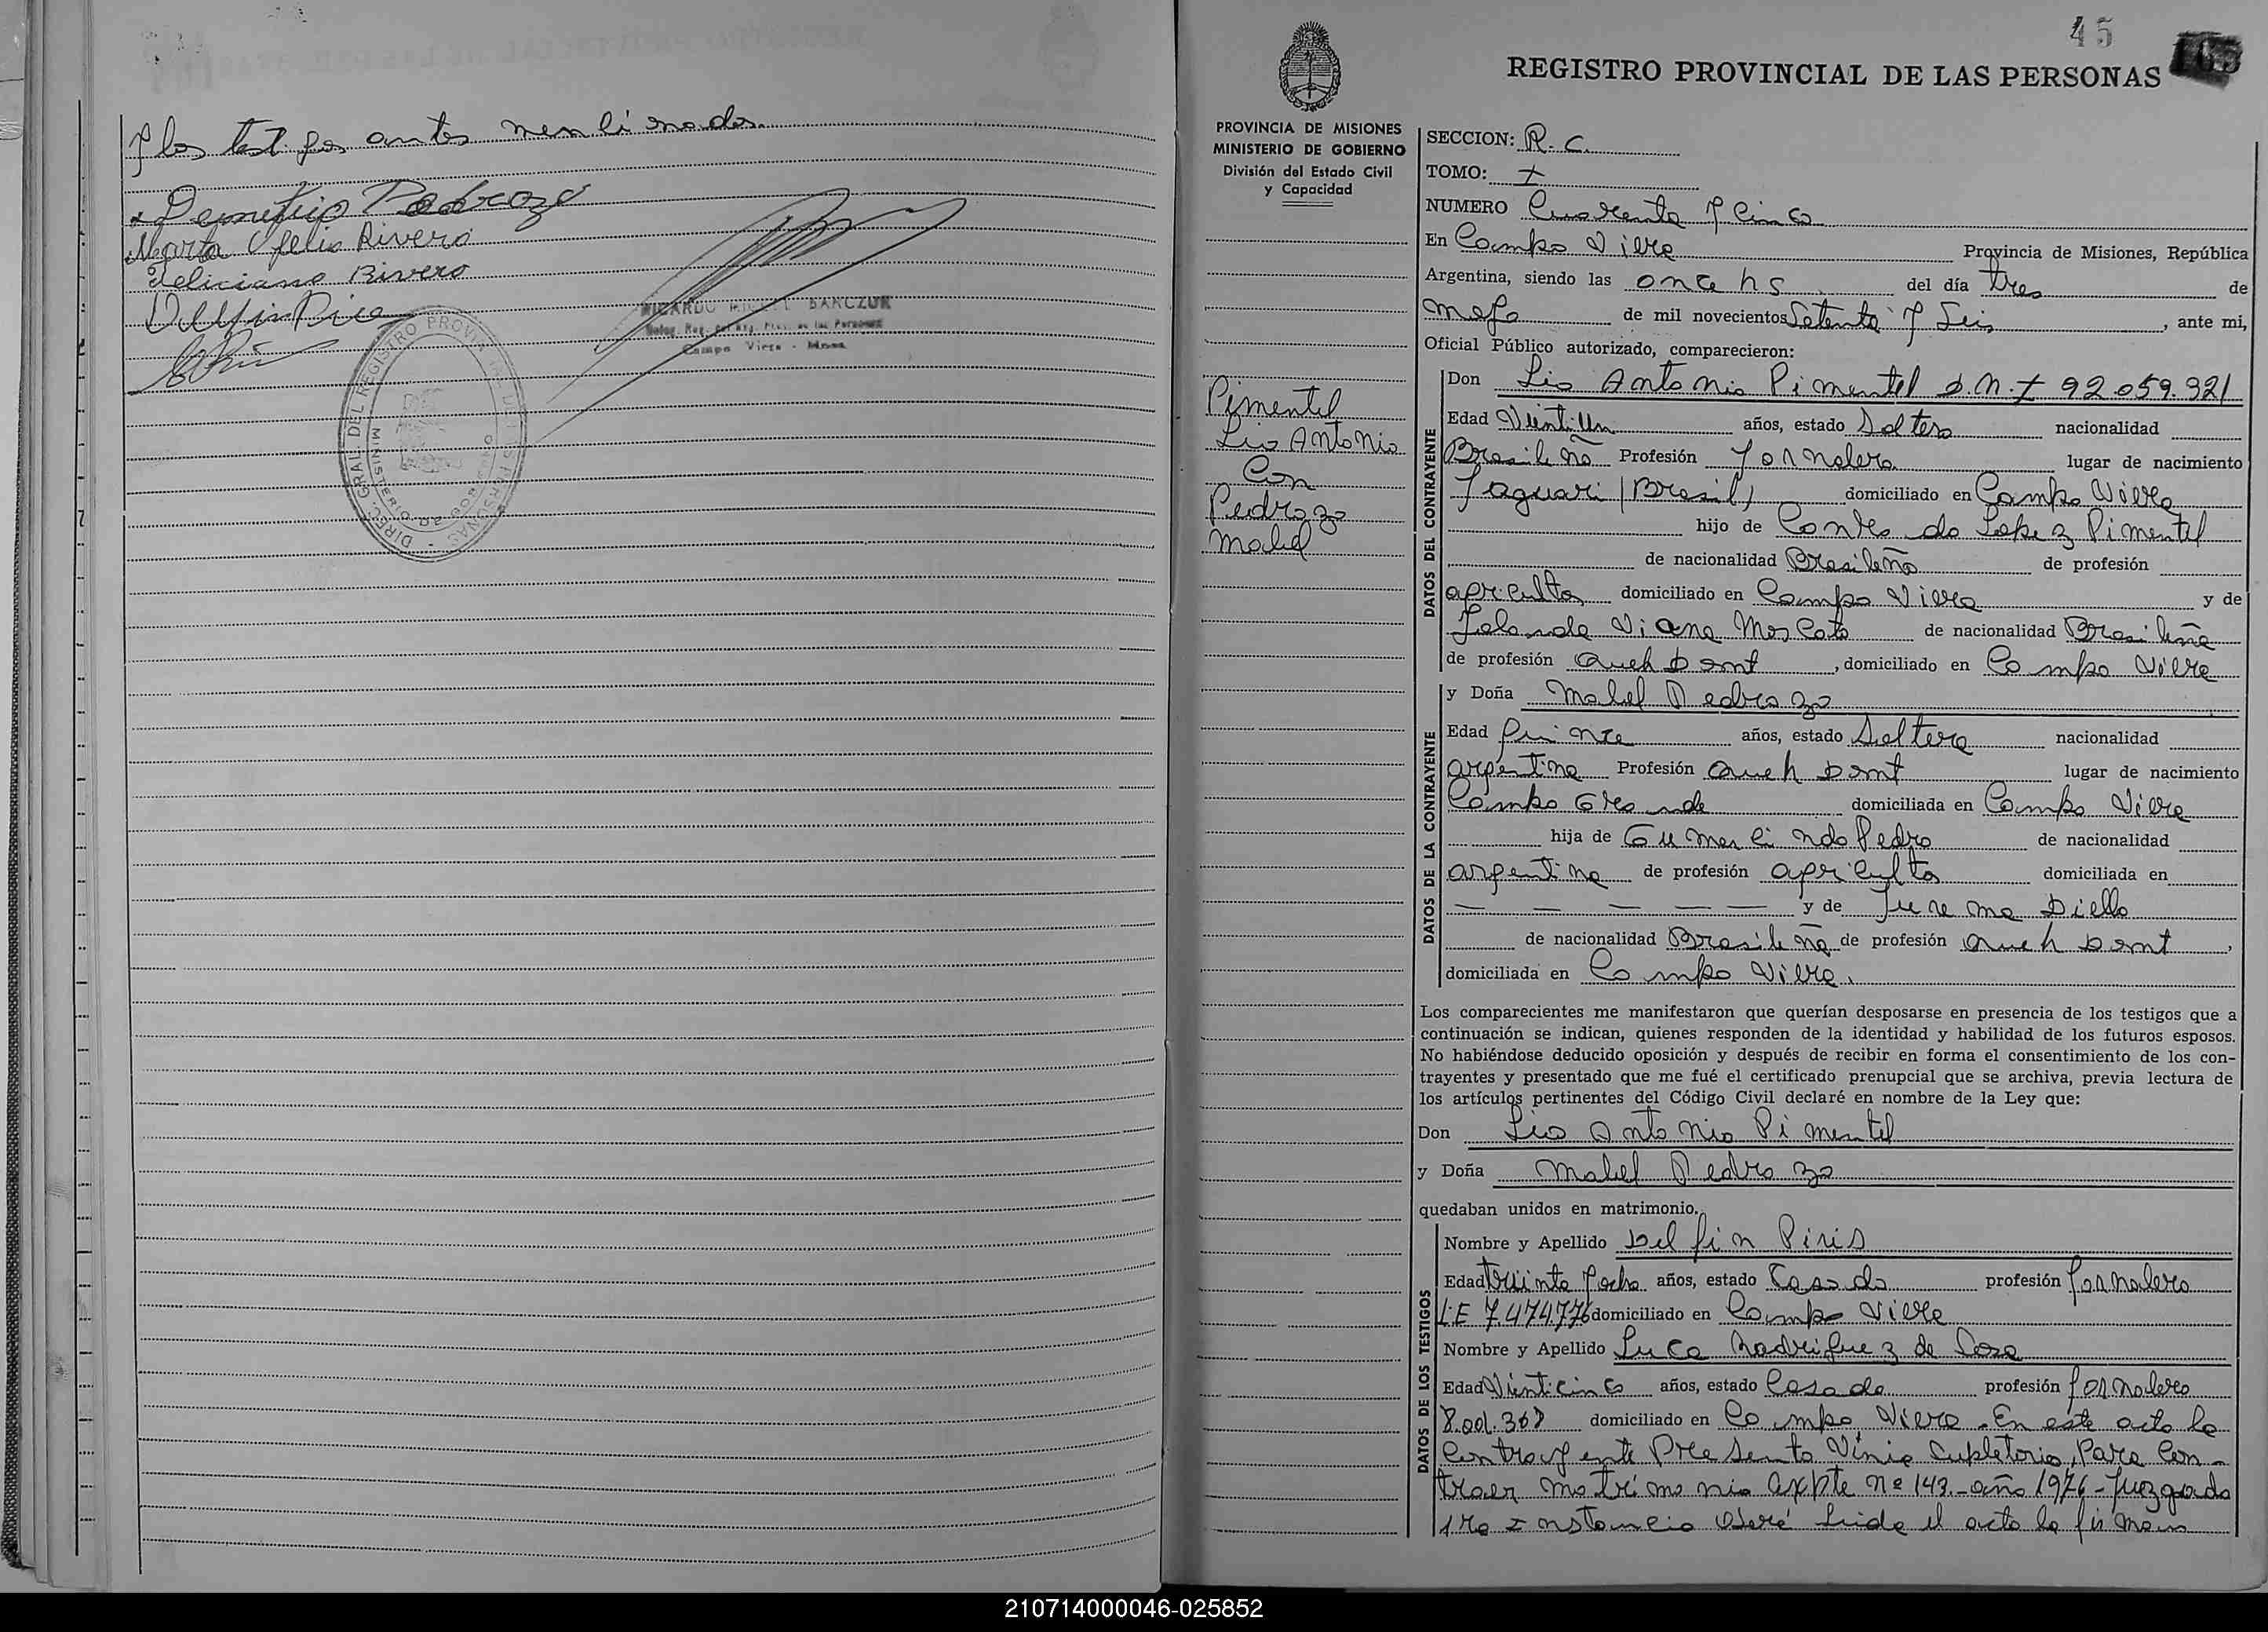 y los testigos antes mencionados.
Demetrio Pedrozo
Marta Ofelia Rivero
Feliciano Rivero
Delfin Piris
RICARDO MIGUEL BARCZUK
Campo Viera - Mnes.
DIREC. GRAL. DEL REGISTRO PROVINCIAL DE LAS PERSONAS
MINISTERIO DE GOBIERNO
45
165
REGISTRO PROVINCIAL DE LAS PERSONAS
PROVINCIA DE MISIONES
MINISTERIO DE GOBIERNO
División del Estado Civil
y Capacidad
Pimentel
Lio Antonio
Con
Pedrozo
Mabel
SECCION: R. C.
TOMO: I
NUMERO Cuarenta y Cinco
En Campo Viera Provincia de Misiones, República
Argentina, siendo las once hs del día tres de
mayo de mil novecientos Setenta y Seis, ante mi,
Oficial Público autorizado, comparecieron:
DATOS DEL CONTRAYENTE
Don Lio Antonio Pimentel D.N.I 92.059.321
Edad Vientiun años, estado Soltero nacionalidad
Brasileño Profesión Jornalero lugar de nacimiento
Jaguari (Brasil) domiciliado en Campo Viera
hijo de Conrado Lopez Pimentel
de nacionalidad Brasileño de profesión
agricultor domiciliado en Campo Viera y de
Jolanda Viana Moscato de nacionalidad Brasileña
de profesión queh Domt, domiciliado en Campo Viera
DATOS DE LA CONTRAYENTE
y Doña Mabel Pedrozo
Edad quince años, estado Soltera nacionalidad
argentina Profesión queh Domt lugar de nacimiento
Campo Grande domiciliada en Campo Viera
hija de Gumercindo Pedro de nacionalidad
argentina de profesión agricultor domiciliada en
— — — — — y de Jurema Diello
de nacionalidad Brasileña de profesión queh Domt,
domiciliada en Campo Viera.
Los comparecientes me manifestaron que querían desposarse en presencia de los testigos que a
continuación se indican, quienes responden de la identidad y habilidad de los futuros esposos.
No habiéndose deducido oposición y después de recibir en forma el consentimiento de los con-
trayentes y presentado que me fué el certificado prenupcial que se archiva, previa lectura de
los artículos pertinentes del Código Civil declaré en nombre de la Ley que:
Don Lio Antonio Pimentel
y Doña Mabel Pedrozo
quedaban unidos en matrimonio.
DATOS DE LOS TESTIGOS
Nombre y Apellido Delfin Piris
Edad Triinta y ocho años, estado Casado profesión Jornalero
L.E 7.474.776 domiciliado en Campo Viera
Nombre y Apellido Luca Rodriguez de Sosa
Edad Vienticinco años, estado Casado profesión Jornalero
8.001.368 domiciliado en Campo Viera. En este acto la
Contrayente Presento Vinia Supletoria, Para Con-
traer matrimonio Expte nº 143.-año 1976 - Juzgado
1ra Instancia Oberá Leida el acta la firman
210714000046-025852